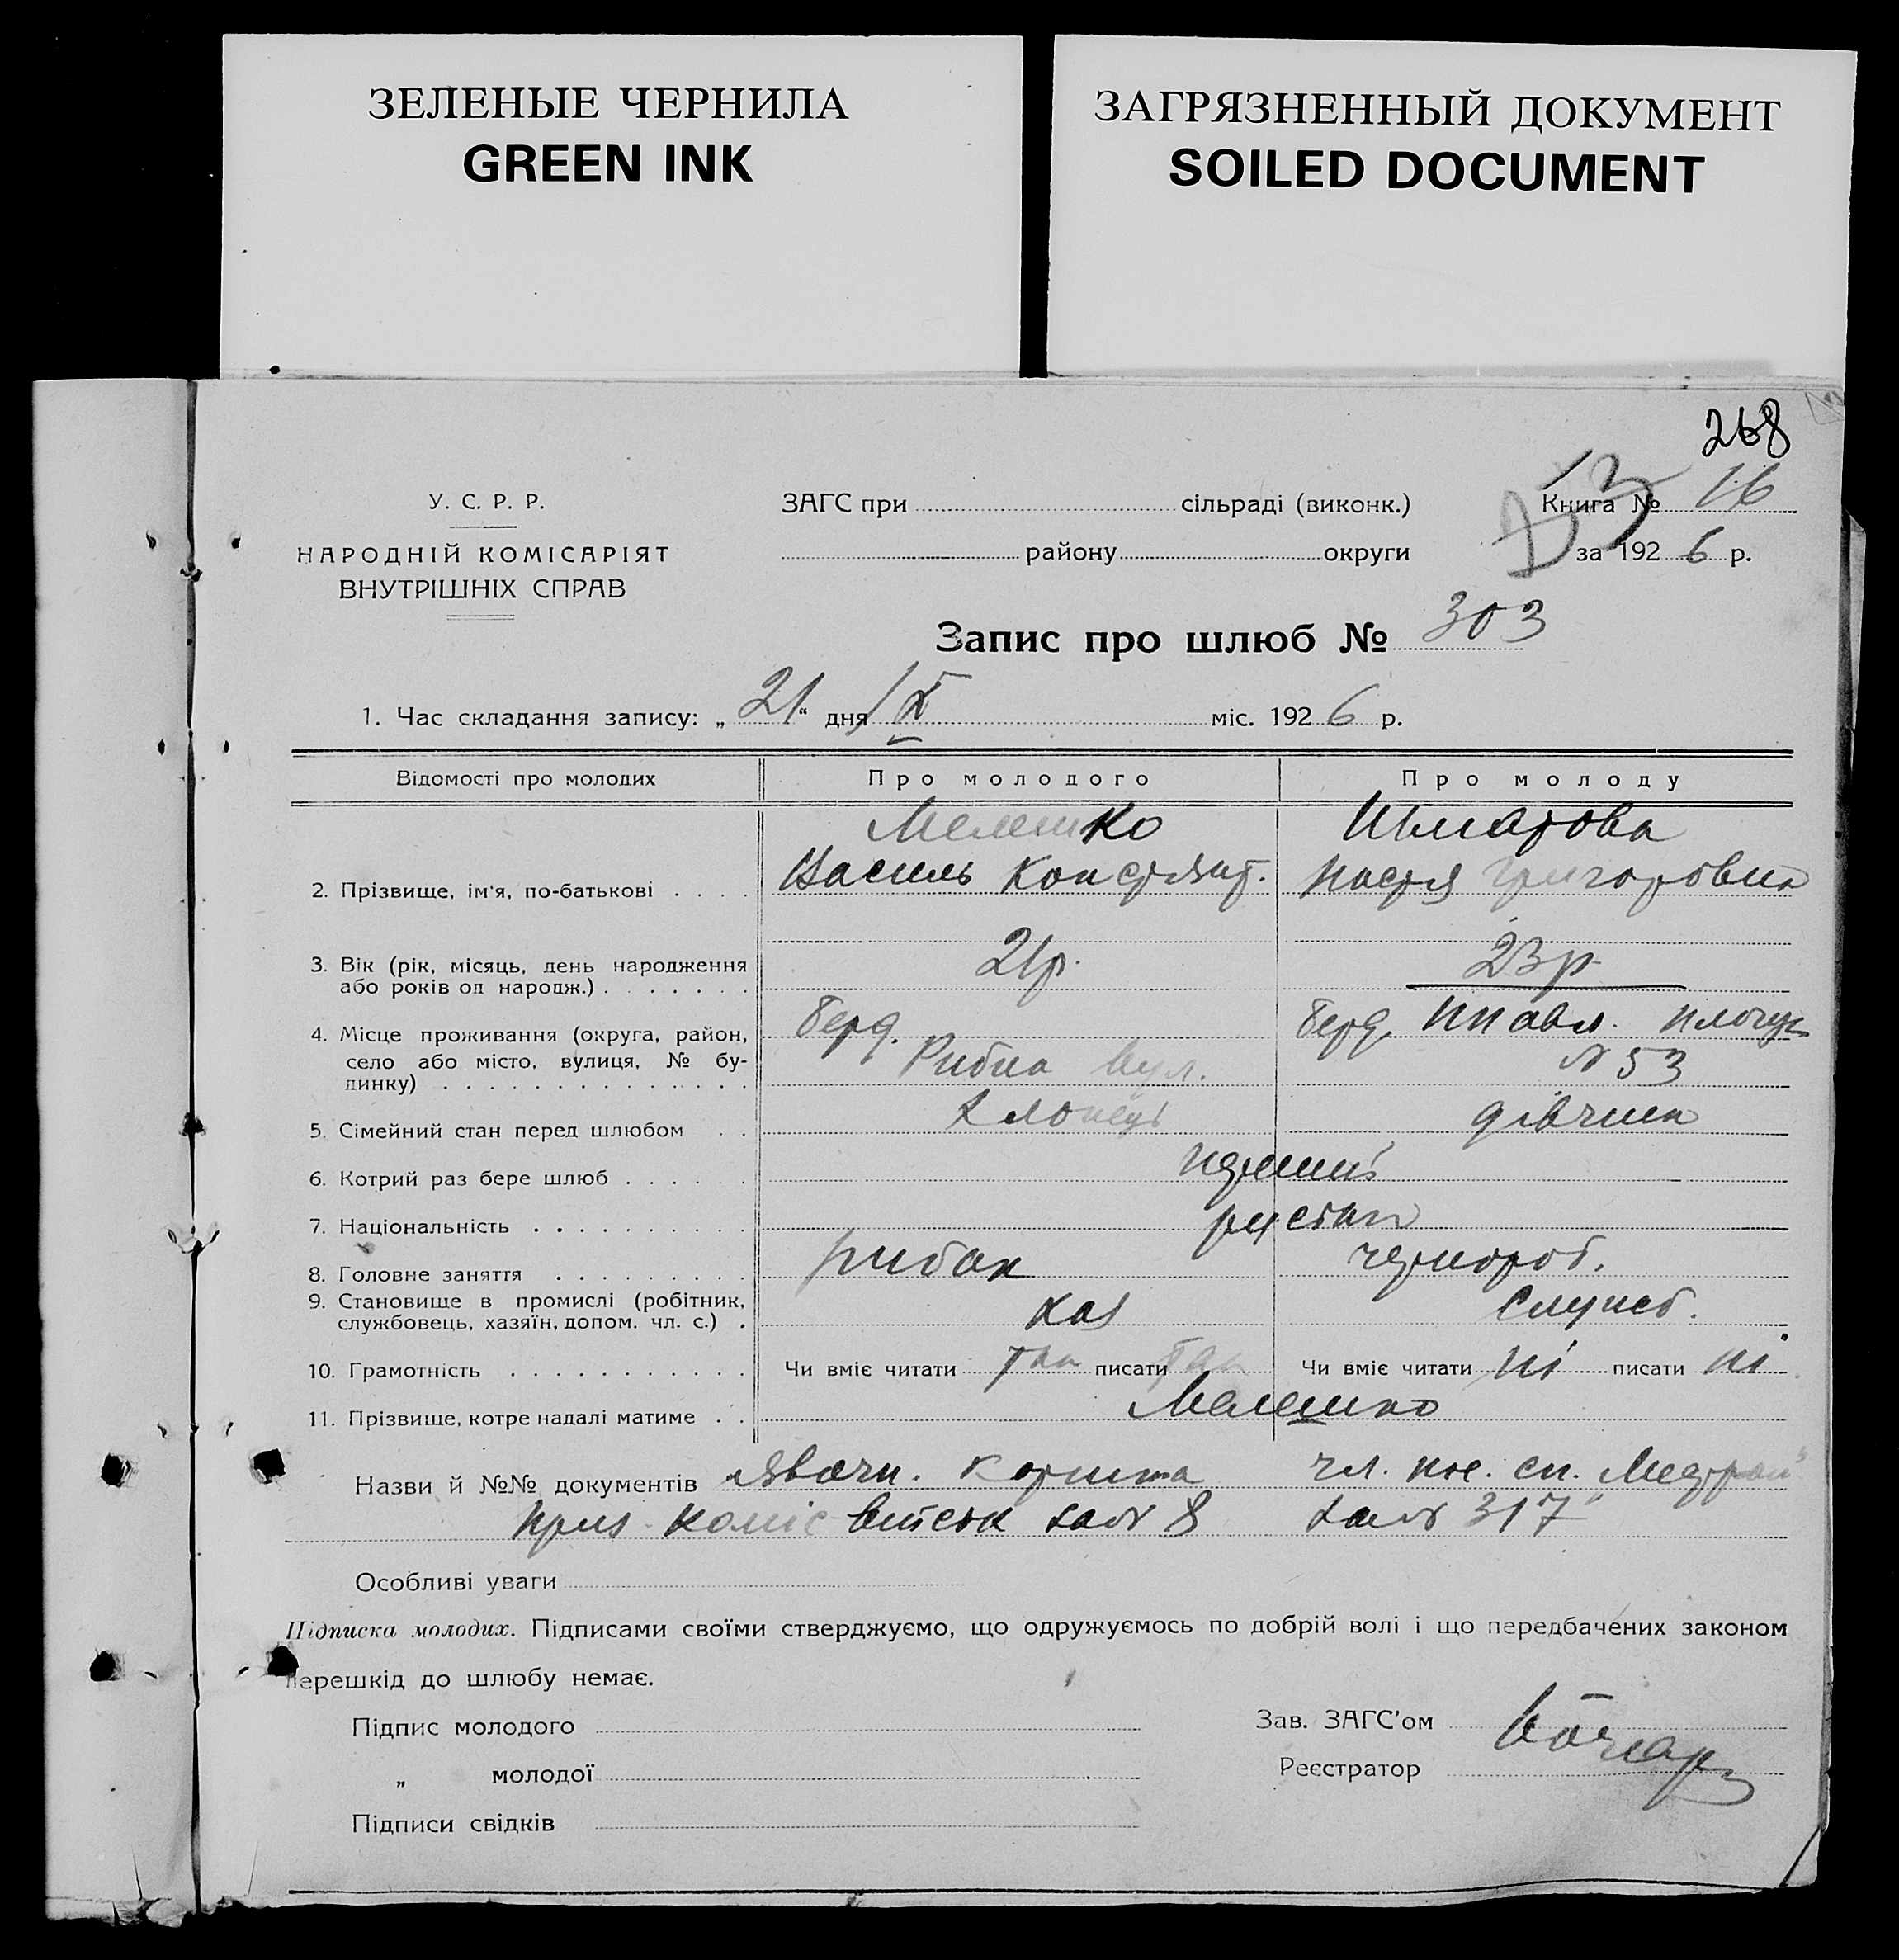 ЗЕЛЕНЫЕ ЧЕРНИЛА
GREEN INK
ЗАГРЯЗНЕННЫЙ ДОКУМЕНТ
SOILED DOCUMENT
268
У. С. Р. Р.
НАРОДНІЙ КОМІСАРІЯТ
ВНУТРІШНІХ СПРАВ
ЗАГС при сільраді (виконк.)
району округи
Книга № 16
за 1926 р.
Запис про шлюб № 303
1. Час складання запису: „21“ дня IX міс. 1926 р.
Відомості про молодих Про молодого Про молоду
Мелешко Шмарова
2. Прізвище, ім'я, по-батькові Василь Констянт. Настя Григоровна
3. Вік (рік, місяць, день народження або років од народж.) 21р. 23р.
4. Місце проживання (округа, район, село або місто, вулиця, № будинку) Берд. Рибна вул. Берд. №53
5. Сімейний стан перед шлюбом хлопець дівчина
6. Котрий раз бере шлюб перший
7. Національність
8. Головне заняття рибак чернороб.
9. Становище в промислі (робітник, службовець, хазяїн, допом. чл. с.) хаз
10. Грамотність Чи вміє читати так писати так Чи вміє читати ні писати ні
11. Прізвище, котре надалі матиме Мелешко
Назви й №№ документів чл. сп.
8 317
Особливі уваги
Підписка молодих. Підписами своїми стверджуємо, що одружуємось по добрій волі і що передбачених законом
перешкід до шлюбу немає.
Підпис молодого
„ молодої
Підписи свідків
Зав. ЗАГС'ом
Реєстратор